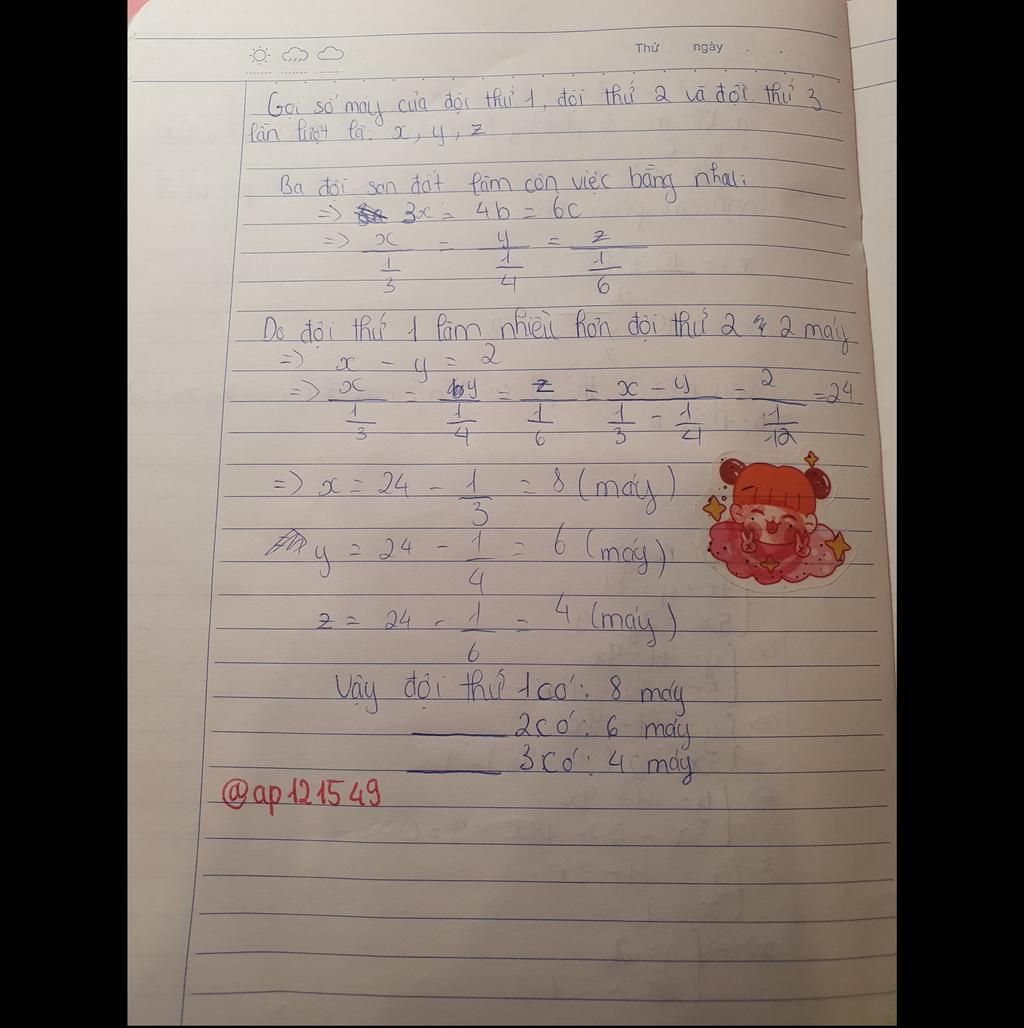 Thứ ngày . .
Gọi số máy của đội thứ 1, đội thứ 2 và đội thứ 3
lần lượt là: x, y, z
Ba đội san đất làm côn việc bằng nhau:
=> 3x = 4b = 6c
=> x/(1/3) = y/(1/4) = z/(1/6)
Do đội thứ 1 làm nhiều hơn đội thứ 2 2 máy
=> x - y = 2
=> x/(1/3) = y/(1/4) = z/(1/6) = (x - y)/(1/3 - 1/4) = 2/(1/12) = 24
=> x = 24 - 1/3 = 8 (máy)
y = 24 - 1/4 = 6 (máy)
z = 24 - 1/6 = 4 (máy)
Vậy đội thứ 1 có: 8 máy
2 có: 6 máy
3 có: 4 máy
@ap121549